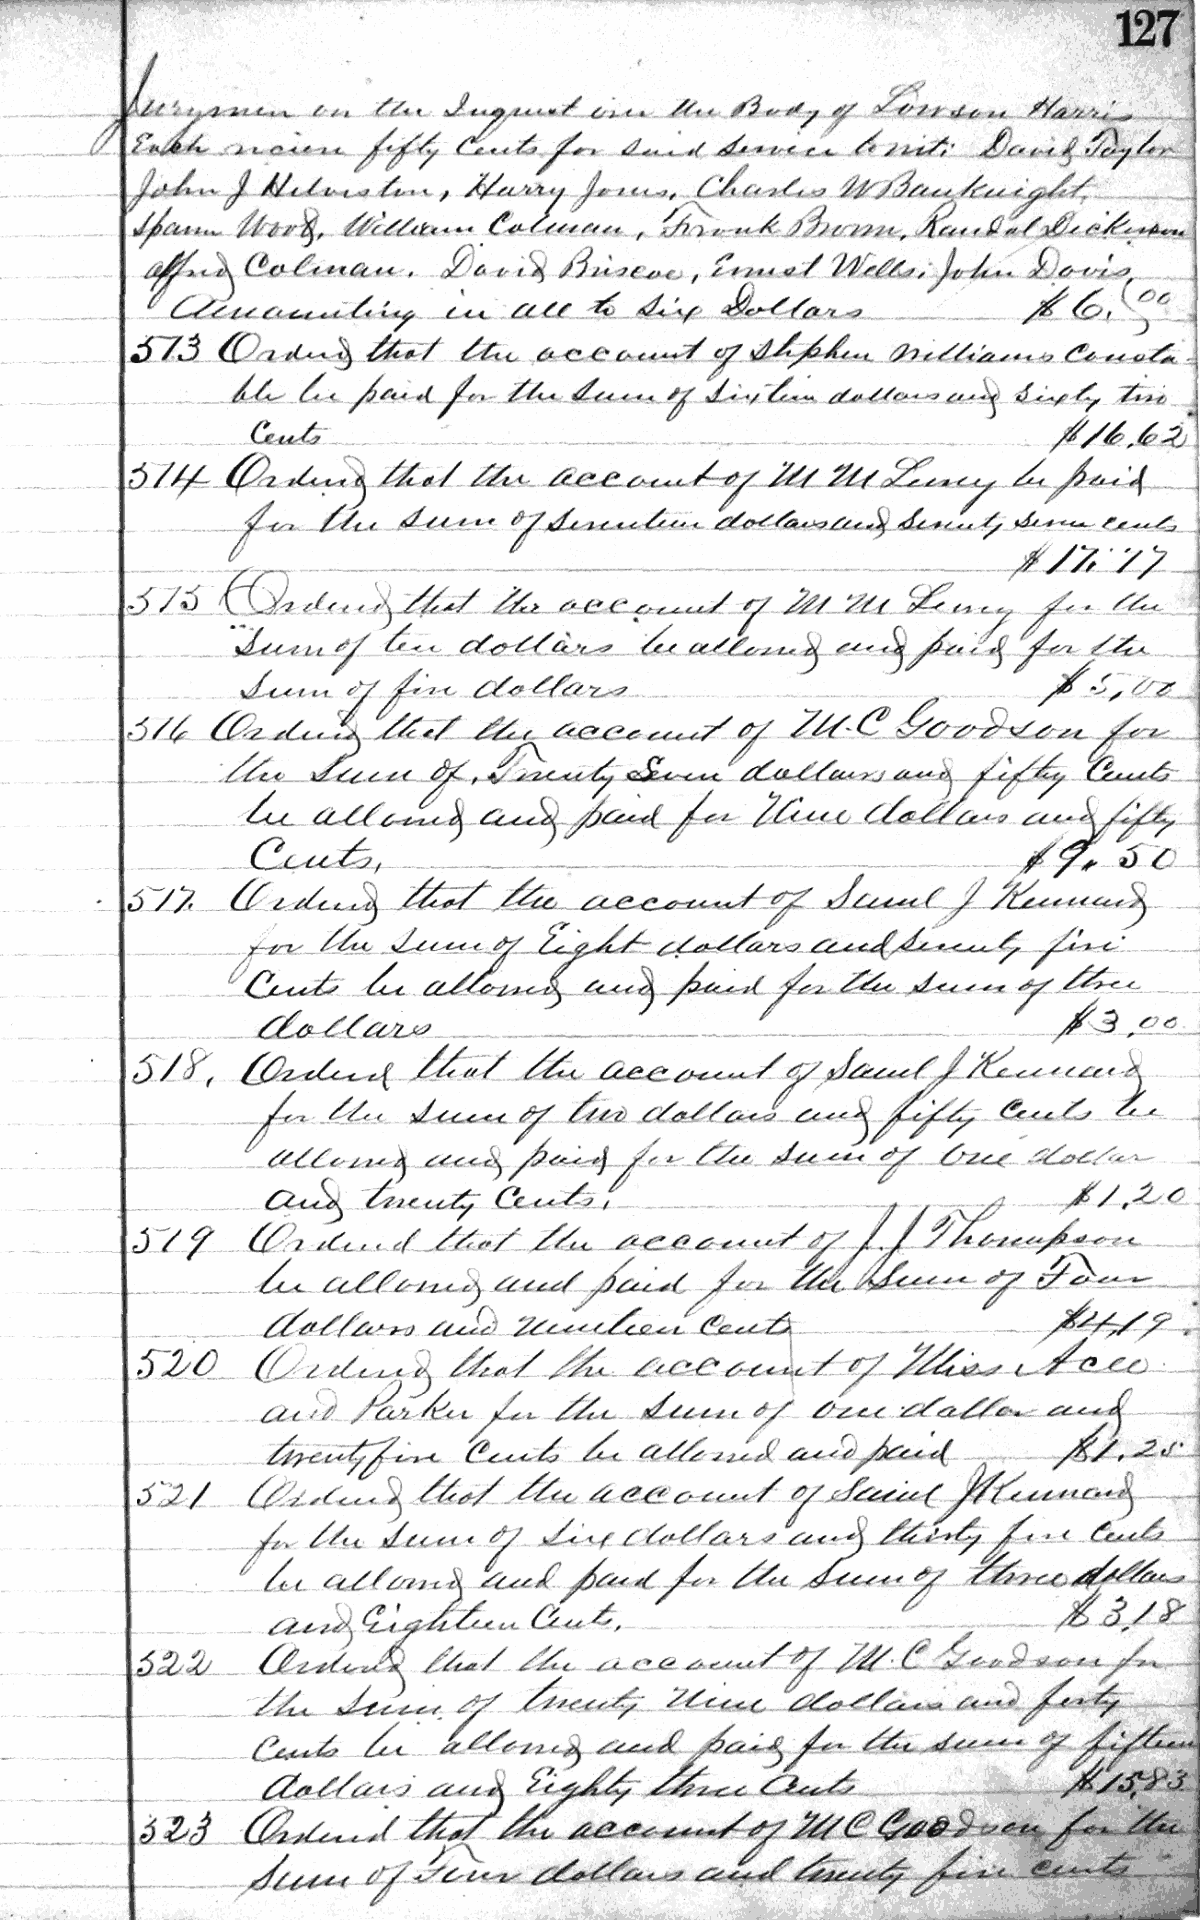 127
Jurymen on the Inquest over the Body of Lowson Harris
Each recieve fifty Cents for said service towit: David Taylor
John J Helveston, Harry Jones, Charles W Bauknight,
Spann Wood, William Colman, Frank Brown, Randal Dickinson
Alfred Colman. David Briscoe, Ernest Wells, John Davis,
Amounting in all to Six Dollars $6.00
513 Ordered that the account of Stephen Williams Consta-
ble be paid for the sum of Sixteen dollars and Sixty two
Cents $16.62
514 Ordered that the account of M M be paid
for the sum of Seventeen dollars and Seventy Seven cents
$17.77
515 Ordered that the account of M M for the
Sum of ten dollars be allowed and paid for the
Sum of five dollars $5,00
516 Ordered that the account of M.C Goodson for
the Sum of, Twenty Seven dollars and fifty Cents
be allowed and paid for Nine dollars and fifty
Cents, $9.50
517. Ordered that the account of Saml J Kennard
for the Sum of Eight dollars and seventy five
Cents be allowed and paid for the sum of three
dollars $3,00
518, Ordered that the account of Saml J Kennard
for the sum of two dollars and fifty cents be
allowed and paid for the sum of one dollar
and twenty Cents, $1,20
519 Ordered that the account of J. J Thompson
be allowed and paid for the Sum of Four
dollars and Nineteen Cents $4,19
520 Ordered that the account of Miss Acee
and Parker for the sum of one dollar and
twenty five Cents be allowed and paid $1,25
521 Ordered that the account of Saml J Kennard
for the sum of Six dollars and thirty five Cents
be allowed and paid for the Sum of three dollars
and Eighteen Cents, $3,18
522 Ordered that the account of M. C Goodson for
the sum of twenty Nine dollars and forty
Cents be allowed and paid for the sum of fifteen
dollars and Eighty three Cents $15,83
523 Ordered that the account of M C Goodson for the
Sum of Four dollars and twenty five cents